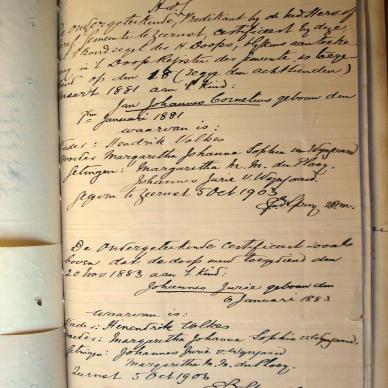 De ondergeteekende, Predikant bij de Ned. Herv. of
Gemeente te Zeerust, certificeert bij deze,
't Bondzegel des H Doops, blijkens aanteeke
in 't Doop Register der gemeente is toege
op den 18 (zegge den achttienden)
Maart 1881 aan 't kind:
Jan Johannes Cornelius geboren den
Januari 1881
waarvan is:
Vader: Hendrik Volkes
Moeder Margaretha Johanna Sophia van Wyngaard
Getuigen: Margaretha M. M. du Plooy
Johannes Jurie v. Wyngaard.
Zeerust 5 Oct 1903
De Ondergeteekende certificeert zooals
boven dat de doop werd toegediend den
20 Nov 1883 aan 't kind:
Johannes Jurie geboren den
6 Januari 1883
waarvan is:
Vader: Henendrik Volkes
Moeder: Margaretha Johanna Sophia v. Wyngaard
Getuigen: Johannes Jurie v. Wyngaard
Margaretha M. M. du Plooy.
Zeerust 5 Oct 1903